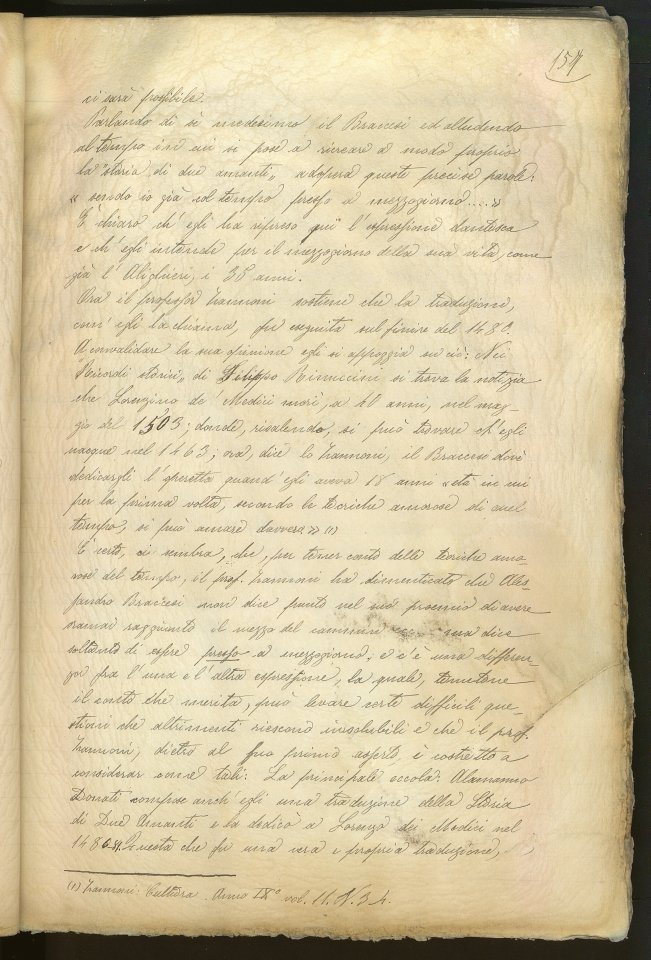 157
ci sarà possibile.
Parlando di sè medesimo il Braccesi ed alludendo
al tempo in cui si pose a ricreare a modo proprio
la "storia di due amanti„ adopera queste precise parole:
"sendo io già ed tempo presso a mezzogiorno....»
È chiaro ch'egli ha ripreso qui l'espressione dantesca
e ch'egli intende per il mezzogiorno della sua vita, come
già l'Alighieri, i 35 anni.
Ora il professor Zannoni sostiene che la traduzione,
com'egli la chiama, fu eseguita sul finire del 1480.
A convalidare la sua opinione egli si appoggia su ciò: Nei
Ricordi storici„ di Filippo Rinuccini si trova la notizia
che Lorenzino de' Medici morì, a 40 anni, nel mag-
gio del 1503; donde, risalendo, si può trovare ch'egli
nacque nel 1463; ora, dice lo Zannoni, il Braccesi dovè
dedicargli l'operetta quand'egli aveva 18 anni «età in cui
per la prima volta, secondo le teoriche amorose di quel
tempo, si può amare davvero.» (1)
È certo, ci sembra, che, per tener conto delle teoriche amo-
rose del tempo, il prof. Zannoni ha dimenticato che Ales-
sandro Braccesi non dice punto nel suo proemio di avere
oramai raggiunto il mezzo del cammin ma dice
soltanto di essere presso a mezzogiorno; e c'è una differen-
za fra l'una e l'altra espressione, la quale, tenutone
il conto che merita, può levare certe difficili que-
stioni che altrimenti riescono insolubili e che il prof.
Zannoni, dietro al suo primo asserto, è costretto a
considerar come tali: La principale eccola: Alamanno
Donati compose anch'egli una traduzione della Storia
di Due Amanti e la dedicò a Lorenzo dei Medici nel
148 Questa che fu una vera e propria traduzione,
(1) Zannoni: Cultura. Anno IXº vol. 11. N. 3-4.